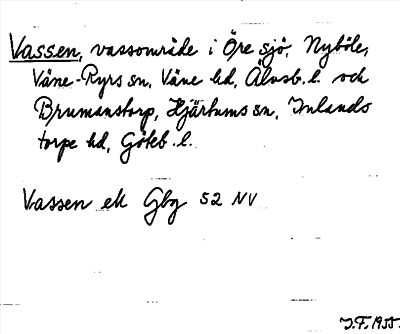 Vassen, vassområde i Öresjö, Nyböle,
Väne-Ryrs sn, Väne hd, Älvsb. l. och
Brumanstorp, Hjärtums sn, Inlands
torpe hd, Göteb. l.
Vassen ek Gbg 52 NV
J.F. 1955.